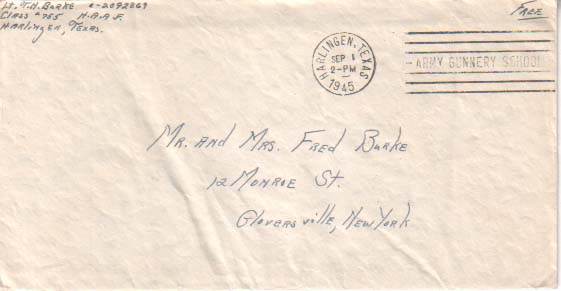 Lt. T.H. Burke O-2092869
Class #755 H.A.A.F.
Harlingen, Texas.
Free
HARLINGEN, TEXAS
SEP 1
2-PM
1945
ARMY GUNNERY SCHOOL
Mr. and Mrs. Fred Burke
12 Monroe St.
Gloversville, New York